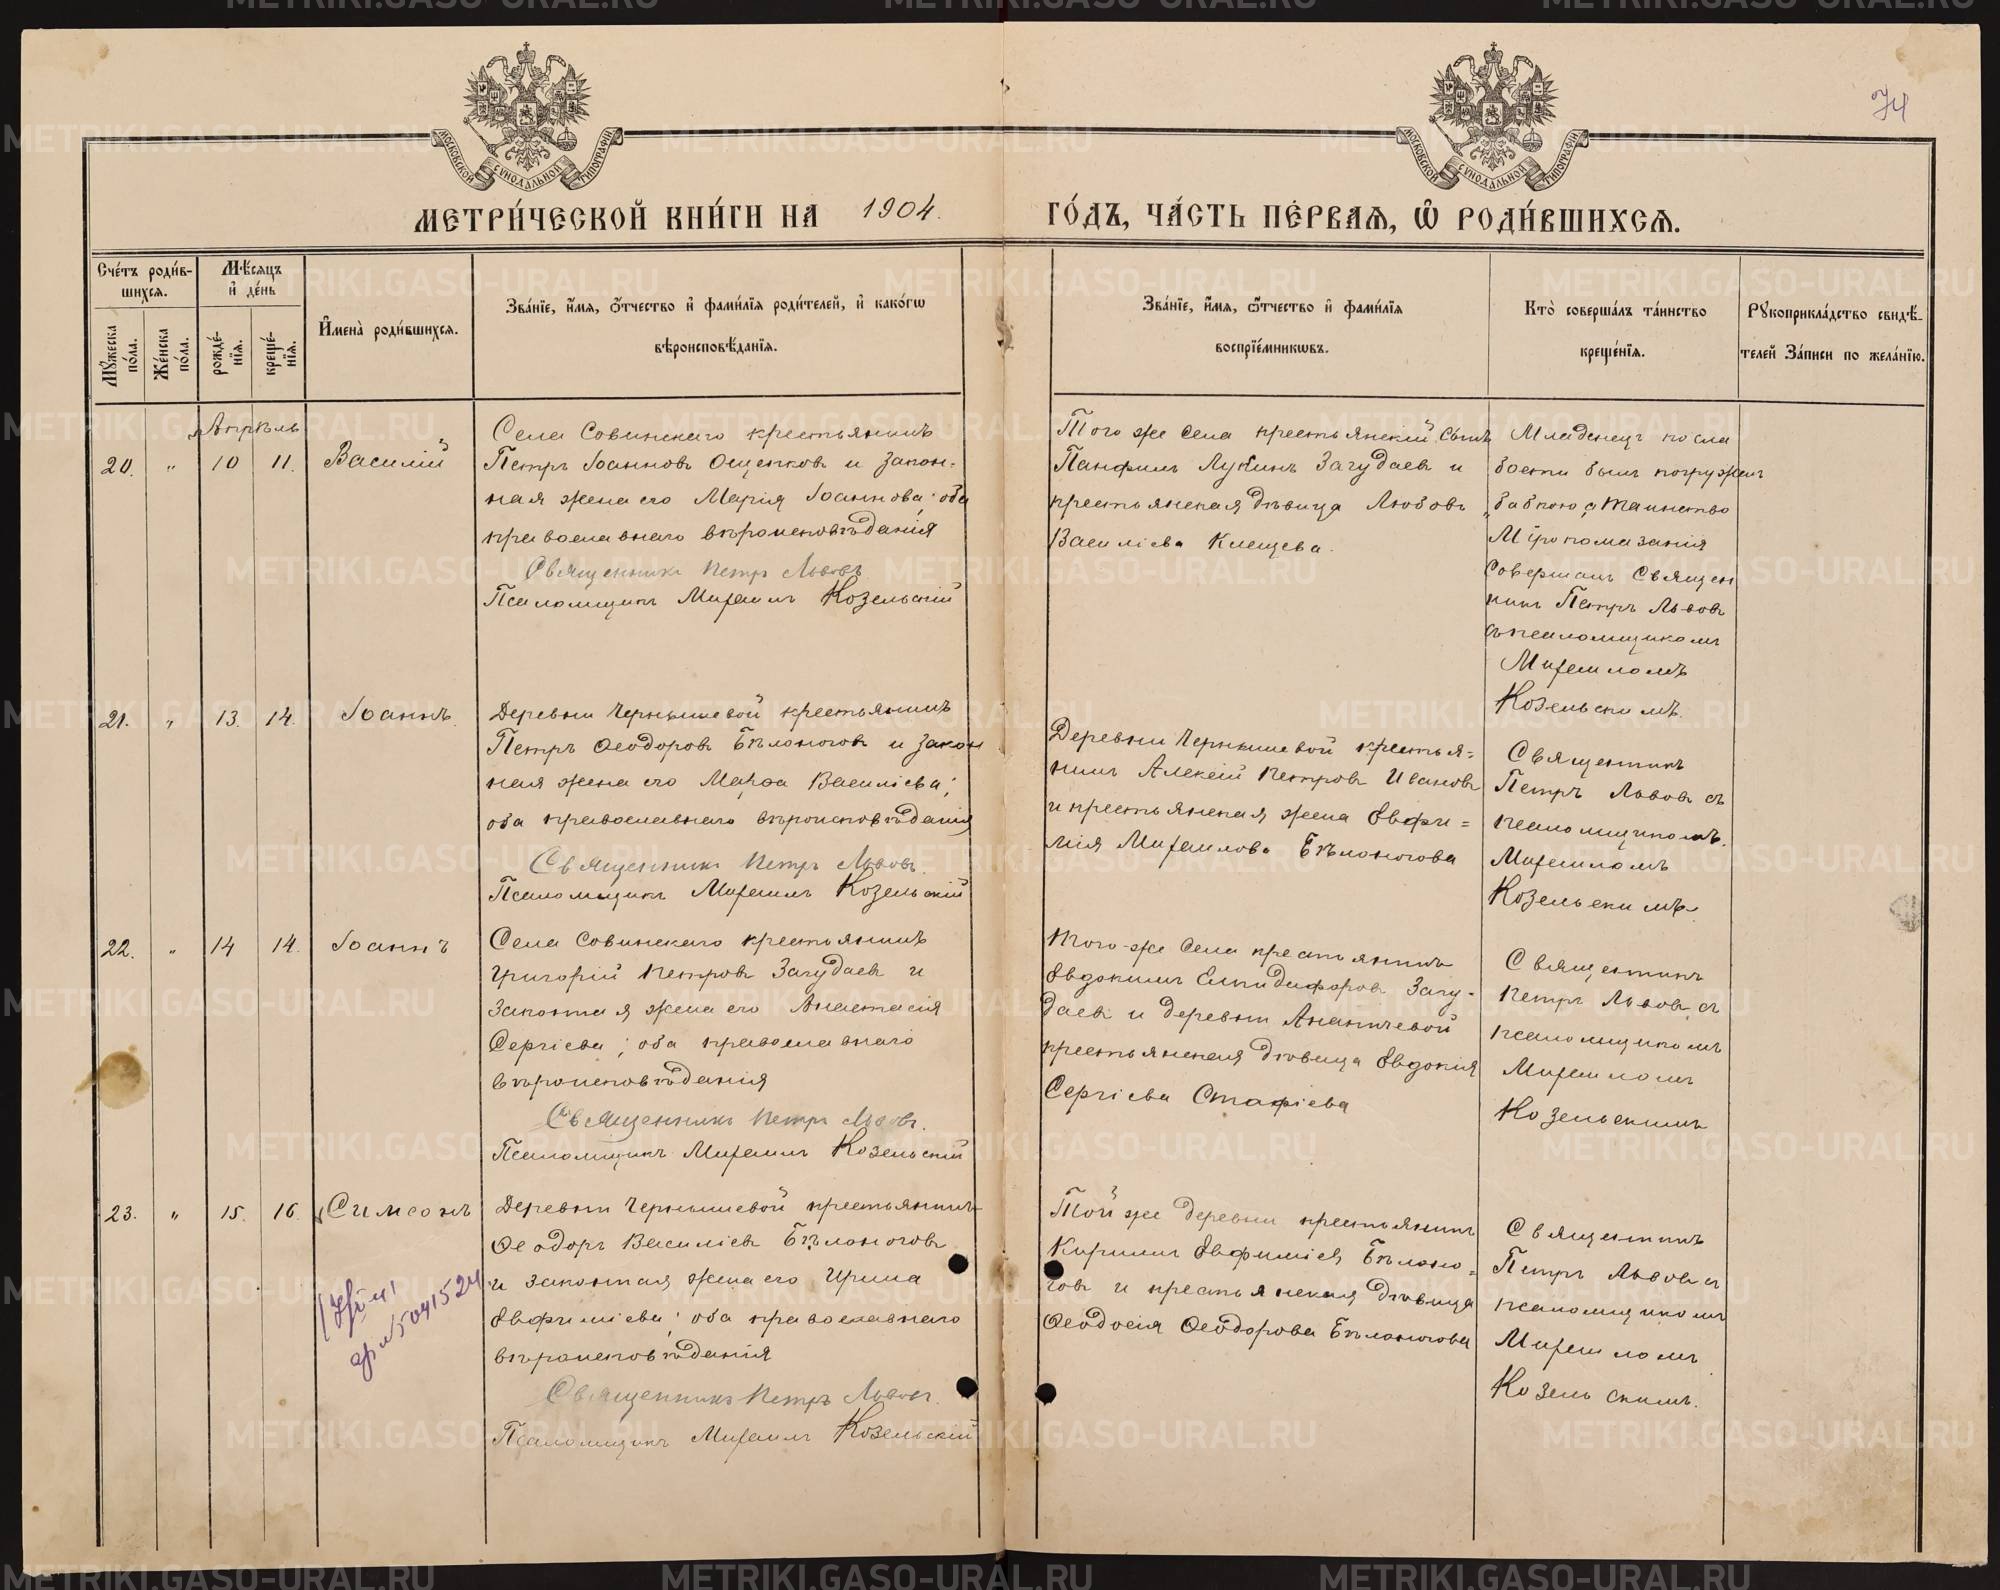 74
МОСКОВСКОЙ СѴНОДАЛЬНОЙ ТИПОГРАФІИ
МОСКОВСКОЙ СѴНОДАЛЬНОЙ ТИПОГРАФІИ
МЕТРИ́ЧЕСКОЙ КНИ́ГИ НА 1904. ГО́ДЪ, ЧА́СТЬ ПЕ́РВАѦ, Ѽ РОДИ́ВШИХСѦ.
Сче́тъ роди́в-
шихся.
Мѣ́сяцъ
и҆ де́нь
Мꙋ́жеска по́ла.
Же́нска по́ла.
рожде́-
нїѧ.
креще́-
нїѧ.
И҆мена̀ роди́вшихсѧ.
Зва́нїе, и҆́мѧ, ѻ҆́тчество и҆ фами́лїѧ роди́телей, и҆ како́гѡ
вѣроисповѣ́данїѧ.
Зва́нїе, и҆́мѧ, ѻ҆́тчество и҆ фами́лїѧ
воспрїе́мникѡвъ.
Кто̀ соверша́лъ та́инство
креще́нїѧ.
Рꙋкоприкла́дство свидѣ́-
телей За́писи по жела́нїю.
Апрѣль
20. " 10 11. Василій
Села Совинскаго крестьянинъ
Петръ Іоанновъ Ощепковъ и закон-
ная жена его Марія Іоаннова; оба
православнаго вѣроисповѣданія
Священникъ Петръ Львовъ
Псаломщикъ Михаилъ Козельскій
Того же села крестьянскій сынъ
Панфилъ Лукинъ Загудаевъ и
крестьянская дѣвица Любовь
Василіева Клещева.
Младенецъ по сла
бости былъ погружен
бабкою, а таинство
Мѵропомазанія
совершалъ Священ
никъ Петръ Львовъ
съ псаломщикомъ
Михаиломъ
Козельскимъ.
21. " 13. 14. Іоаннъ.
Деревни Чернышевой крестьянинъ
Петръ Ѳеодоровъ Бѣлоноговъ и закон
ная жена его Марѳа Василіева;
оба православнаго вѣроисповѣданія
Священникъ Петръ Львовъ.
Псаломщикъ Михаилъ Козельскій
Деревни Чернышевой крестья-
нинъ Алексій Петровъ Ивановъ
и крестьянская жена Евфи-
мія Михаилова Бѣлоногова
Священникъ
Петръ Львовъ съ
псаломщикомъ
Михаиломъ
Козельскимъ.
22. " 14 14. Іоаннъ
Села Совинскаго крестьянинъ
Григорій Петровъ Загудаевъ и
законная жена его Анастасія
Сергіева; оба православнаго
вѣроисповѣданія
Священникъ Петръ Львовъ.
Псаломщикъ Михаилъ Козельскій
Того-же села крестьянинъ
Евдокимъ Елпидифоровъ Загу-
даевъ и деревни Ананичевой
крестьянская дѣвица Евдокія
Сергіева Стафіева
Священникъ
Петръ Львовъ съ
псаломщикомъ
Михаиломъ
Козельскимъ
23. " 15. 16. Симеонъ
Деревни Чернышевой крестьянинъ
Ѳеодоръ Василіевъ Бѣлоноговъ
и законная жена его Ирина
Евфиміева; оба православнаго
вѣроисповѣданія
Священникъ Петръ Львовъ.
Псаломщикъ Михаилъ Козельскій
Той же деревни крестьянинъ
Кириллъ Евфиміевъ Бѣлоно-
говъ и крестьянская дѣвица
Ѳеодосія Ѳеодорова Бѣлоногова
Священникъ
Петръ Львовъ съ
псаломщикомъ
Михаиломъ
Козельскимъ.
METRIKI.GASO-URAL.RU